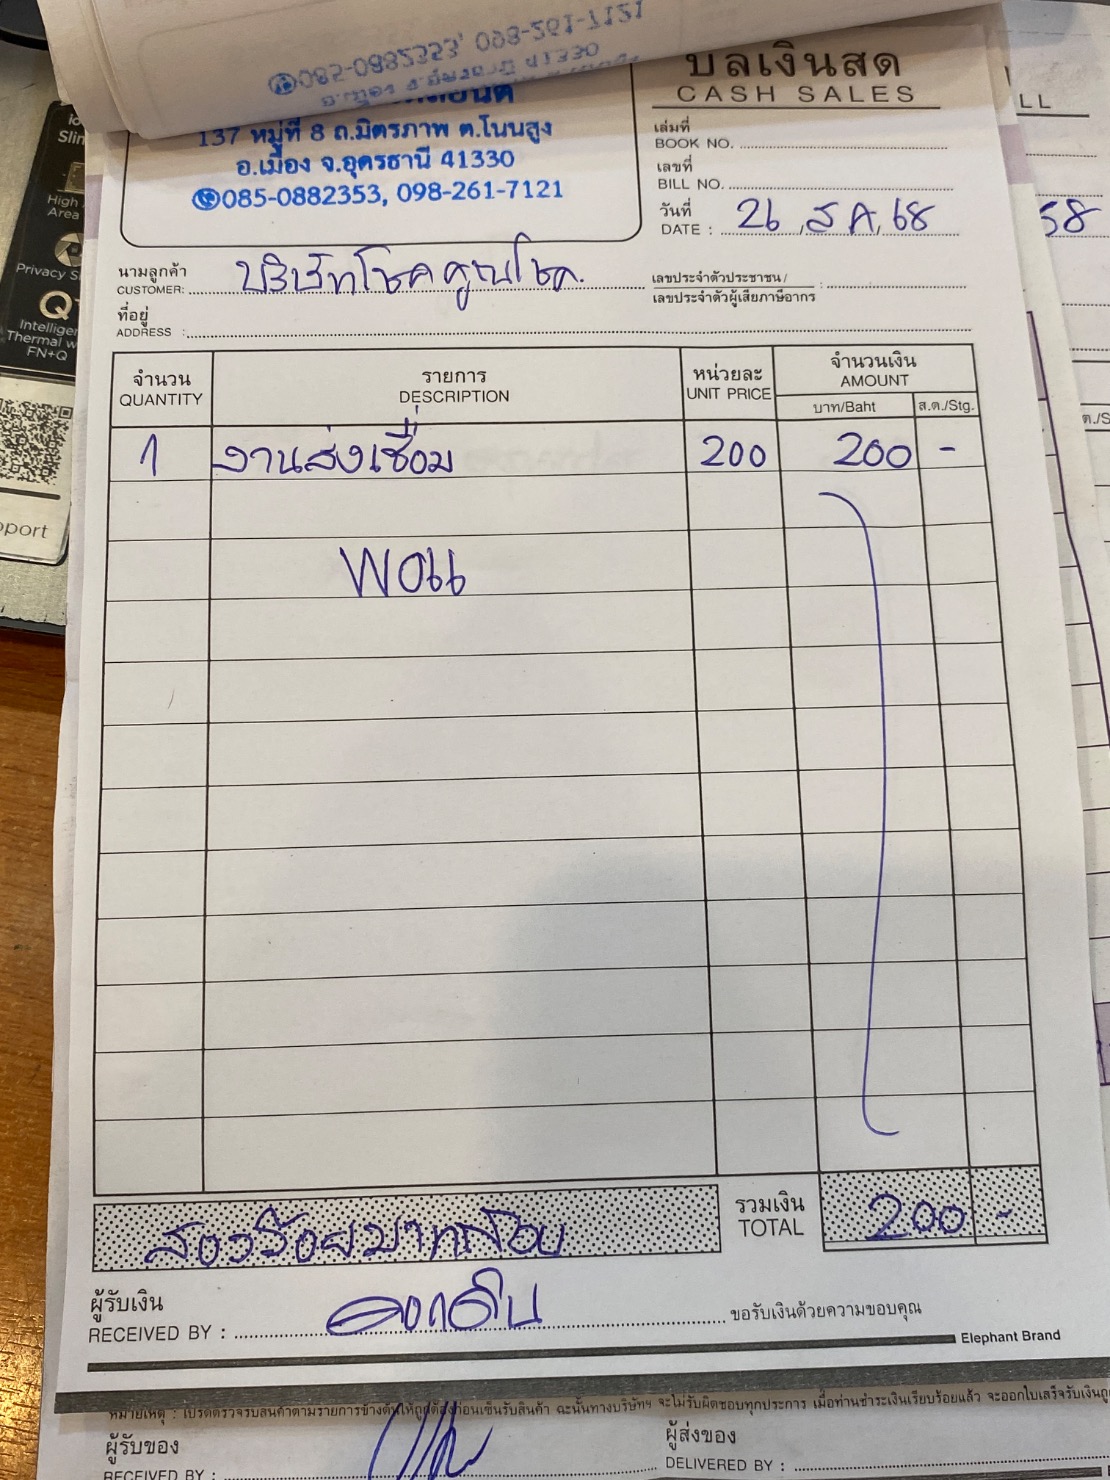 บิลเงินสด
CASH SALES
137 หมู่ที่ 8 ถ.มิตรภาพ ต.โนนสูง
อ.เมือง จ.อุดรธานี 41330
085-0882353, 098-261-7121
เล่มที่
BOOK NO.
เลขที่
BILL NO.
วันที่
DATE : 26 ส.ค. 68
นามลูกค้า
CUSTOMER: บริษัทโชคคูณโชค.
เลขประจำตัวประชาชน /
เลขประจำตัวผู้เสียภาษีอากร :
ที่อยู่
ADDRESS :
จำนวน
QUANTITY
รายการ
DESCRIPTION
หน่วยละ
UNIT PRICE
จำนวนเงิน
AMOUNT
บาท/Baht
ส.ต./Stg.
1 งานส่งเชื่อม 200 200 -
รวมเงิน
TOTAL
200 -
สองร้อยบาทถ้วน
ผู้รับเงิน
RECEIVED BY :
ขอรับเงินด้วยความขอบคุณ
Elephant Brand
หมายเหตุ : โปรดตรวจรับสินค้าตามรายการข้างต้นให้ถูกต้องก่อนเซ็นรับสินค้า ฉะนั้นทางบริษัทฯ จะไม่รับผิดชอบทุกประการ เมื่อท่านชำระเงินเรียบร้อยแล้ว จะออกใบเสร็จรับเงิน
ผู้รับของ
RECEIVED BY :
ผู้ส่งของ
DELIVERED BY :